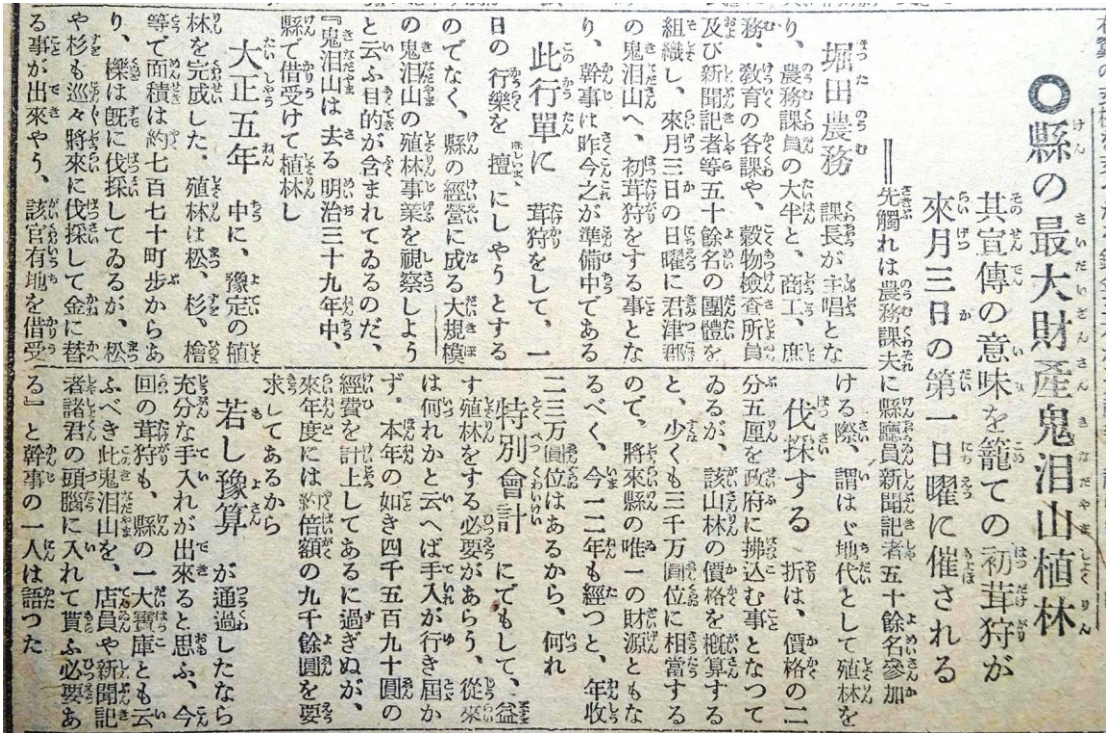 ◎縣の最大財産鬼泪山植林
其宣傳の意味を籠ての初茸狩が
來月三日の第一日曜に催される
＝先觸れは農務課夫に縣廳員新聞記者五十餘名參加
堀田農務　課長が主唱とな
り、農務課員の大半と、商工、庶
務、敎育の各課や、穀物檢査所員
及び新聞記者等五十餘名の團體を
組織し、來月三日の日曜に君津郡
の鬼泪山へ、初茸狩をする事とな
り、幹事は昨今之が準備中である
此行單に　茸狩をして、一
日の行樂を　擅にしやうとする
のでなく、縣の經營に成る大規模
の鬼泪山の殖林事業を視察しよう
と云ふ目的が含まれてゐるのだ、
『鬼泪山は去る明治三十九年中、
縣で借受けて植林し
大正五年　中に、豫定の植
林を完成した、殖林は松、杉、檜
等で面積は約七百七十町歩からあ
り、櫟は旣に伐採してゐるが、松
や杉も巡々將來に伐採して金に替
る事が出來やう、該官有地を借受
ける際、謂はゞ地代として殖林を
伐採する　折は、價格の二
分五厘を政府に拂込む事となつて
ゐるが、該山林の價格を概算する
と、少くも三千万圓位に相當する
ので、將來縣の唯一の財源ともな
るべく、今一二年も經つと、年收
二三万圓位はあるから、何れ
特別會計　にでもして、益
す殖林をする必要があらう、從來
は何れかと云へば手入が行き屆か
ず。本年の如き四千五百九十圓の
經費を計上してあるに過ぎぬが、
來年度には約倍額の九千餘圓を要
求してあるから
若し豫算　が通過したなら
充分な手入れが出來ると思ふ、今
回の茸狩も、縣の一大寶庫とも云
ふべき此鬼泪山を、店員や新聞記
者諸君の頭腦に入れて貰ふ必要あ
る』と幹事の一人は語つた